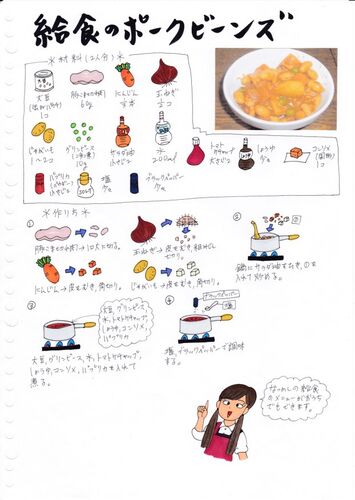 給食のポークビーンズ
※材料(2人分)※
大豆
1コ
豚こま切れ肉
60g
にんじん
玉ねぎ
じゃがいも
1〜2コ
グリンピース
10g
サラダ油
小さじ
水
200ml
トマト
ケチャップ
大さじ
しょうゆ
少々
コンソメ
(固形)
1コ
パプリカ
(パウダー)
小さじ
塩
少々
ブラックペッパー
少々
※作り方※
①
豚こま切れ肉→一口大に切る。
玉ねぎ→皮をむき、
切り。
にんじん→皮をむき、角切り。
じゃがいも→皮をむき、角切り。
②
鍋にサラダ油をひき、①を
入れて炒める。
③
大豆、グリンピース、
水、トマトケチャップ、
しょうゆ、コンソメ、
パプリカ
大豆、グリンピース、水、トマトケチャップ、
しょうゆ、コンソメ、パプリカを入れて
煮る。
④
ブラックペッパー
塩
塩、ブラックペッパーで調味
する。
なつかしの給食
のメニューがおうち
でもできます。